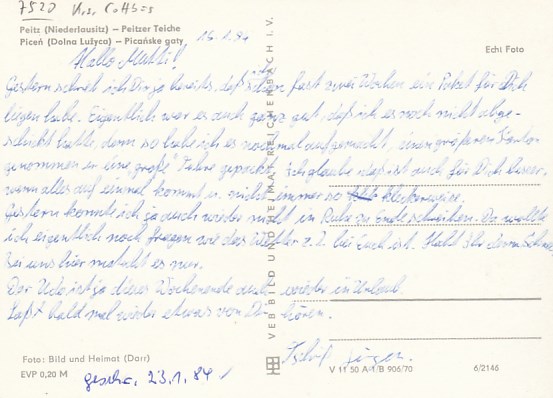 7520 Krs. Cottbus
Peitz (Niederlausitz) — Peitzer Teiche
Piceń (Dolna Łužyca) — Picańske gaty
16.1.84
Echt Foto
Hallo Mutti!
Gestern schrieb ich Dir ja bereits, daß ich schon fast zwei Wochen ein Paket für Dich
liegen habe. Eigentlich war es auch ganz gut, daß ich es noch nicht abge-
schickt hatte, denn so habe ich es nochmal aufgemacht, einen größeren Karton
genommen u. eine große Fuhre gepackt. Ich glaube das ist auch für Dich besser,
wenn alles auf einmal kommt u. nicht immer so kleckerweise.
Gestern konnte ich ja auch wieder nicht in Ruhe zu Ende schreiben. Da wollte
ich eigentlich noch fragen wie das Wetter z. Z. bei Euch ist. Habt Ihr denn Schnee
Bei uns hier matscht es nur.
Der Udo ist ja dieses Wochenende auch wieder in Urlaub.
Laßt bald mal wieder etwas von Dir hören.
Tschüß Jürgen.
VEB BILD UND HEIMAT REICHENBACH I. V.
Foto: Bild und Heimat (Darr)
EVP 0,20 M
geschr. 23.1.84
V 11 50 A 1/B 906/70
6/2146